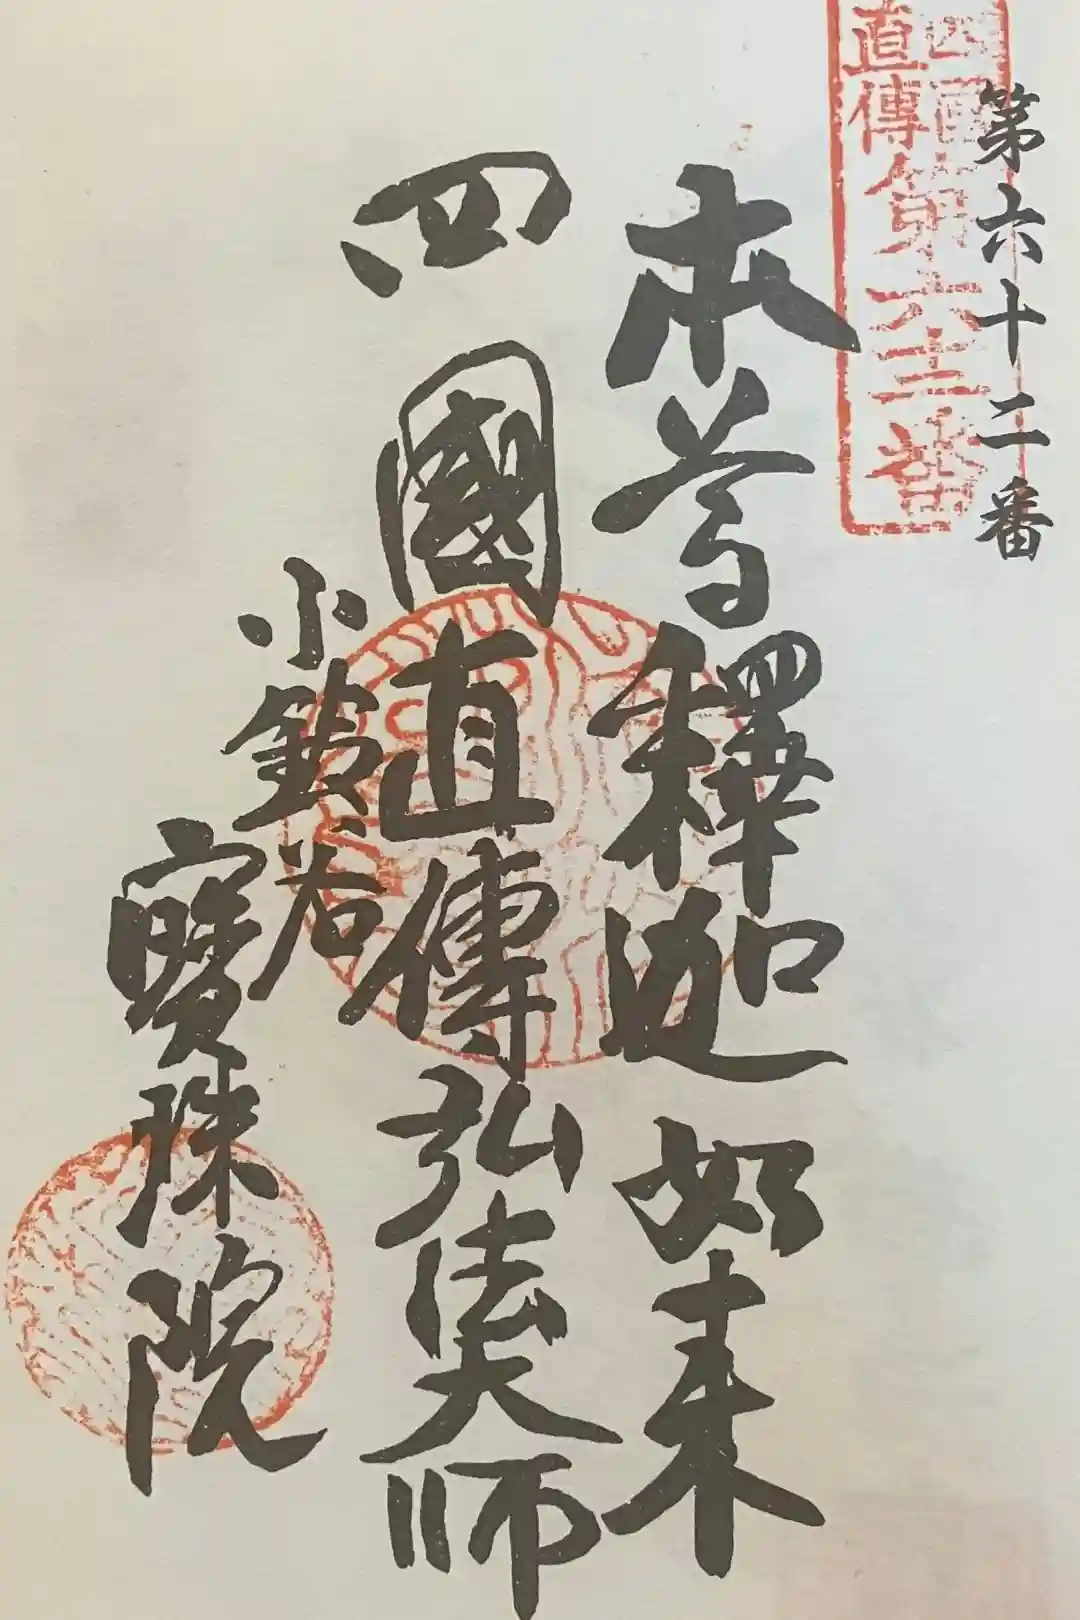 第六十二番
四國
直傳
第六十二番
本尊釋迦如来
四國直傳弘法大師
小鈴谷
寶珠院